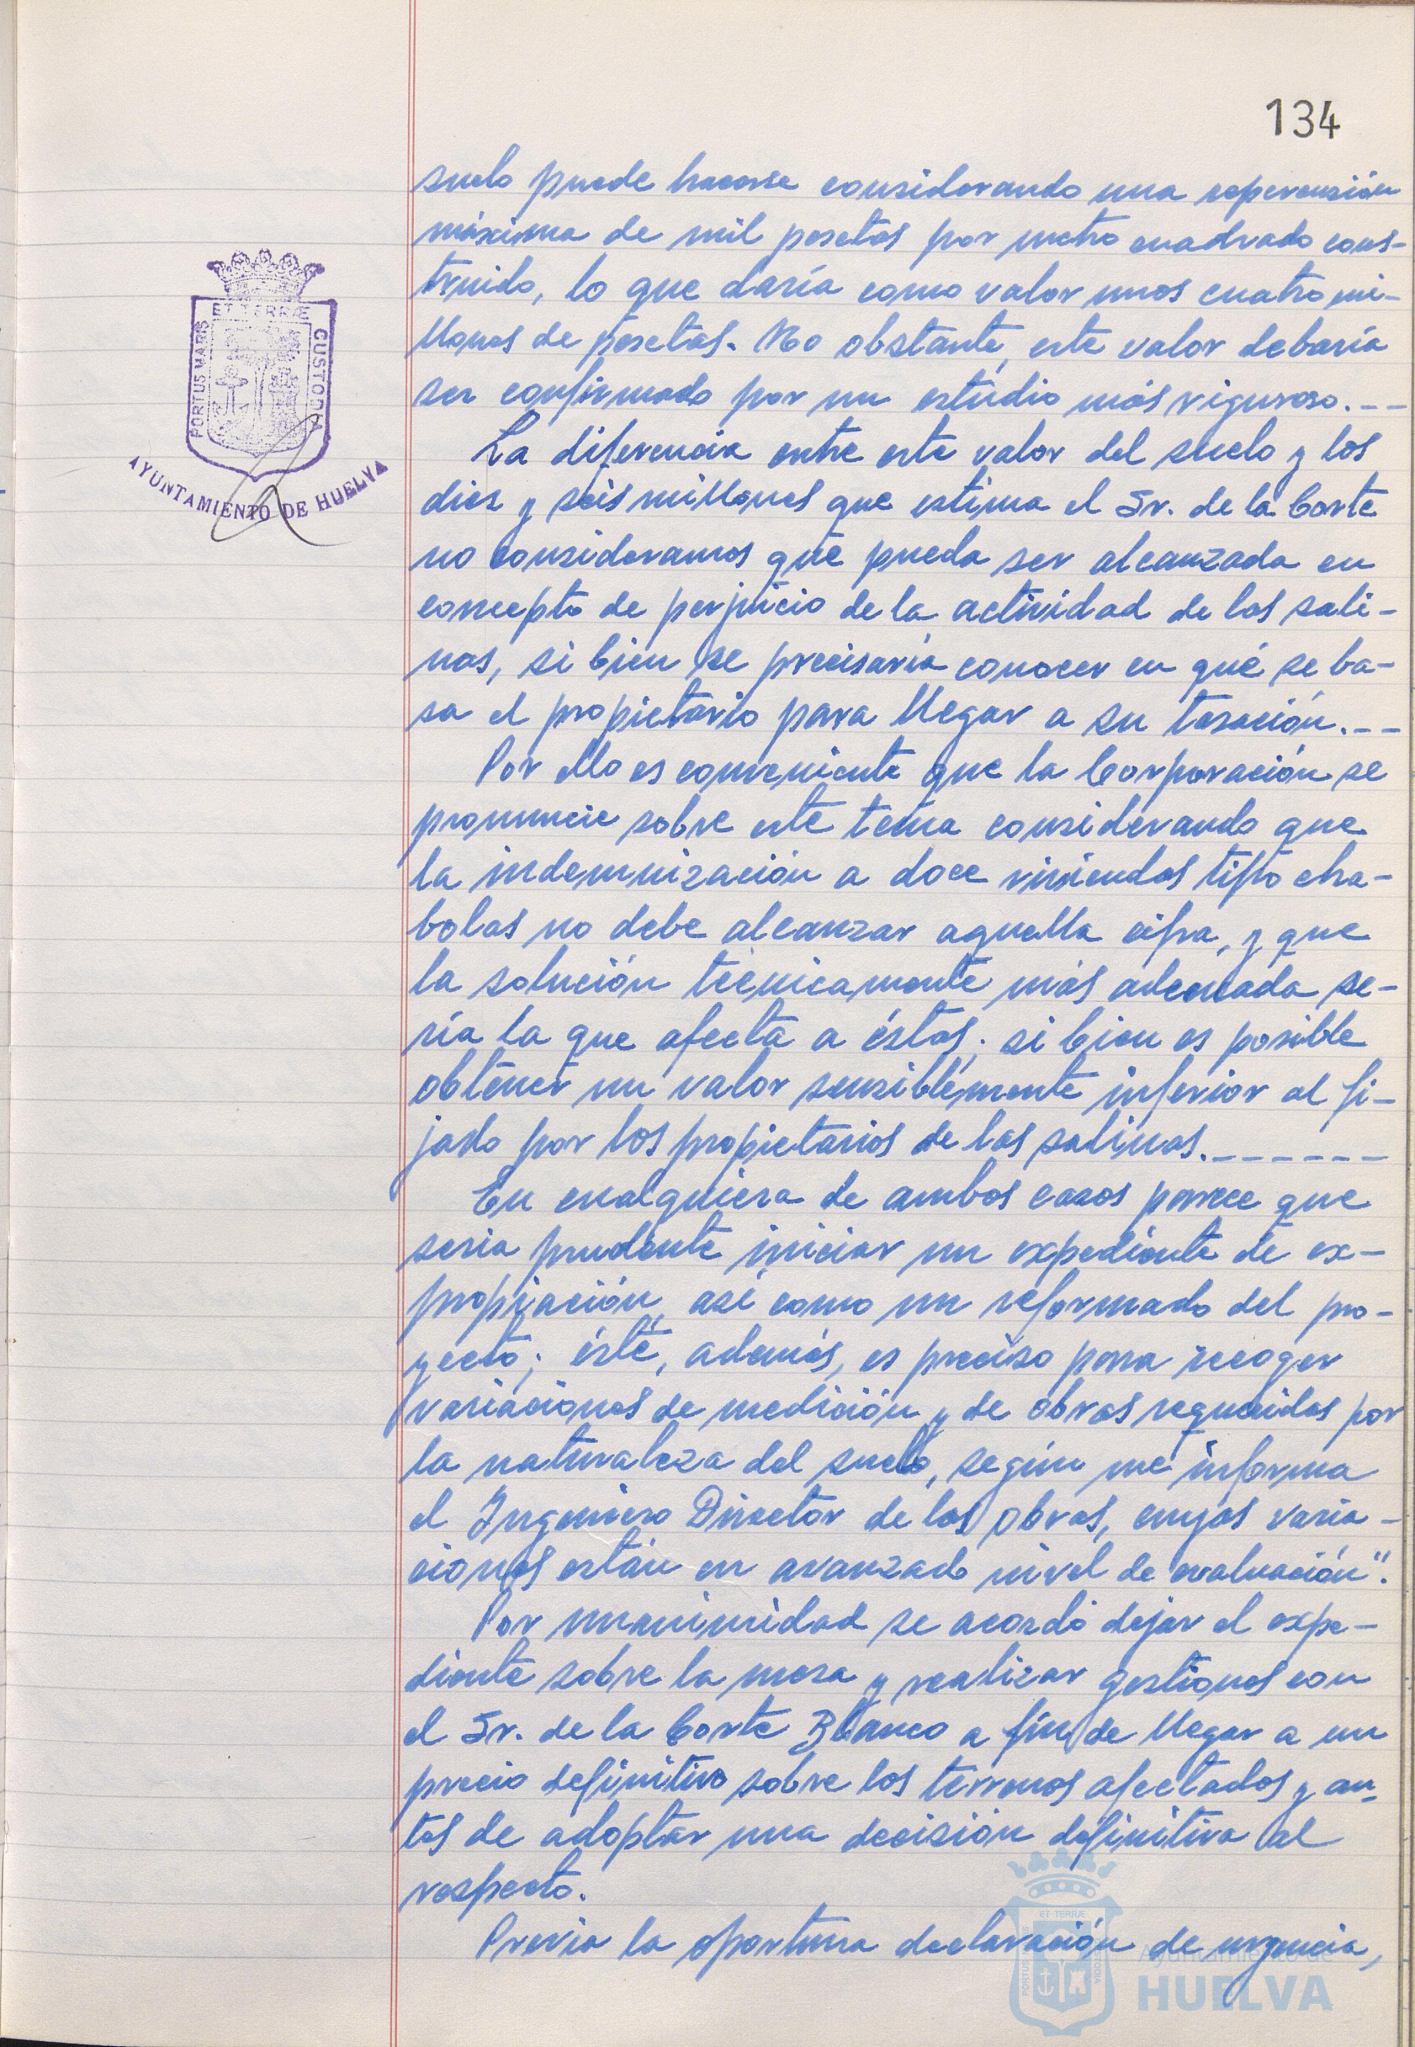 134
suelo puede hacerse considerando una repercusión
máxima de mil pesetas por metro cuadrado cons-
truido, lo que daría como valor unos cuatro mi-
llones de pesetas. No obstante, este valor debería
ser confirmado por un estudio más riguroso.--
La diferencia entre este valor del suelo y los
diez y seis millones que estima el Sr. de la Corte
no consideramos que pueda ser alcanzada en
concepto de perjuicio de la actividad de las sali-
nas, si bien se precisaría conocer en qué se ba-
sa el propietario para llegar a su tasación.--
Por ello es conveniente que la Corporación se
pronuncie sobre este tema considerando que
la indemnización a doce viviendas tipo cha-
bolas no debe alcanzar aquella cifra, y que
la solución técnicamente más adecuada se-
ría la que afecta a éstas; si bien es posible
obtener un valor sensiblemente inferior al fi-
jado por los propietarios de las salinas.------
En cualquiera de ambos casos parece que
seria prudente iniciar un expediente de ex-
propiación, así como un reformado del pro-
yecto; éste, además, es preciso para recoger
variaciones de medición y de obras requeridas por
la naturaleza del suelo, según me informa
el Ingeniero Director de las obras, cuyas varia-
ciones están en avanzado nivel de evaluación".
Por unanimidad se acordó dejar el expe-
diente sobre la mesa y realizar gestiones con
el Sr. de la Corte Blanco a fin de llegar a un
precio definitivo sobre los terrenos afectados y an-
tes de adoptar una decisión definitiva al
respecto.
Previa la oportuna declaración de urgencia,
PORTUS MARIS
ET TERRÆ
CUSTODIA
AYUNTAMIENTO DE HUELVA
PORTUS MARIS
ET TERRÆ
CUSTODIA
Ayuntamiento de
HUELVA